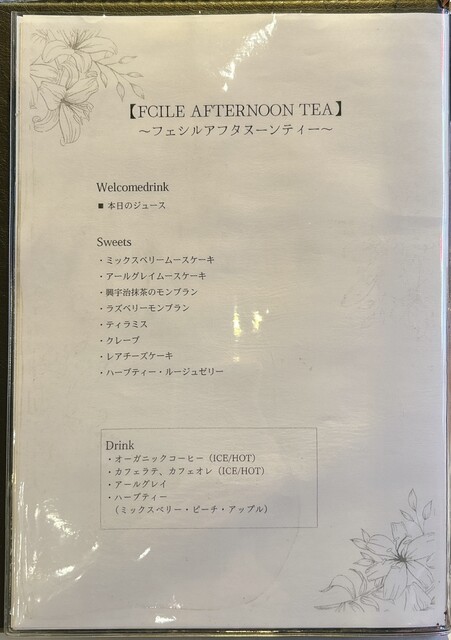 【FCILE AFTERNOON TEA】
～フェシルアフタヌーンティー～
Welcomedrink
■ 本日のジュース
Sweets
・ミックスベリームースケーキ
・アールグレイムースケーキ
・興宇治抹茶のモンブラン
・ラズベリーモンブラン
・ティラミス
・クレープ
・レアチーズケーキ
・ハーブティー・ルージュゼリー
Drink
・オーガニックコーヒー（ICE/HOT）
・カフェラテ、カフェオレ（ICE/HOT）
・アールグレイ
・ハーブティー
（ミックスベリー・ピーチ・アップル）